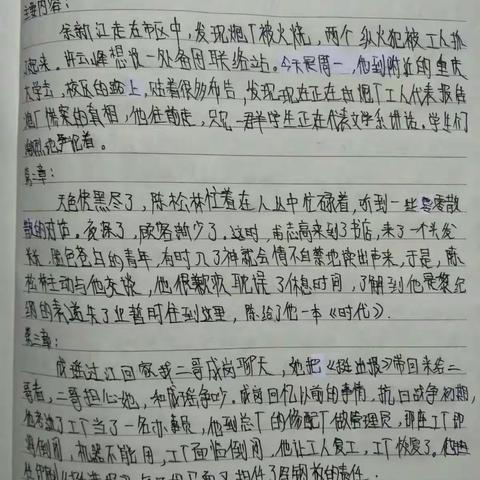 主要内容:
余新江走在市区中，发现炮厂被火烧，两个纵火犯被工人抓
了起来。许云峰想设一处备用联络站。今天是周一，他到附近的重庆
大学去，校区的路上，贴着很多布告，发现现在正在由炮厂工人代表报告
炮厂惨案的真相，他往前走，只见一群学生正在代表文学系讲话。学生们
激烈地争论着。
第二章:
天色快黑尽了，陈松林忙着在人丛中忙碌着，听到一些零散
散的对话。夜深了，顾客渐少了，这时，甫志高来到了书店，来了一个头发
长，脸色苍白的青年，有时入了神就会情不自禁地读出声来，于是，陈
松林主动与他交谈，他很歉意耽误了休息时间，了解到他是黎纪
纲的表弟失了业暂时住到这里，陈给了他一本《时代》.
第三章:
成瑶过江回家找二哥成岗聊天，她把《挺进报》带回来给二
哥看，二哥担心她，和成瑶争吵。成岗回忆以前的事情，抗日战争初期，
他考进了工厂当了一名办事员，他到总厂的修配厂做管理员，那座工厂即
将倒闭，机器不能用，工厂面临倒闭，他让工人复工，工厂恢复了。